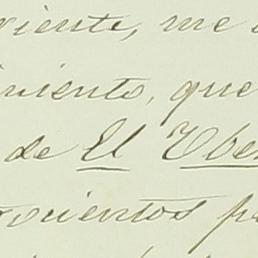 viente, me
miento, que
de El Ube
ocientos p